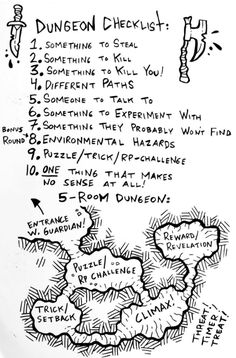 DUNGEON CHECKLIST:
1. SOMETHING TO STEAL
2. SOMETHING TO KILL
3. SOMETHING TO KILL YOU!
4. DIFFERENT PATHS
5. SOMEONE TO TALK TO
6. SOMETHING TO EXPERIMENT WITH
7. SOMETHING THEY PROBABLY WON'T FIND
BONUS
ROUND*
8. ENVIRONMENTAL HAZARDS
9. PUZZLE/TRICK/RP-CHALLENGE
10. ONE THING THAT MAKES
NO SENSE AT ALL!
5-ROOM DUNGEON:
ENTRANCE
W. GUARDIAN!
REWARD/
REVELATION
PUZZLE/
RP CHALLENGE
TRICK/
SETBACK
CLIMAX!
THREAT!
TIMER!
TREAT!